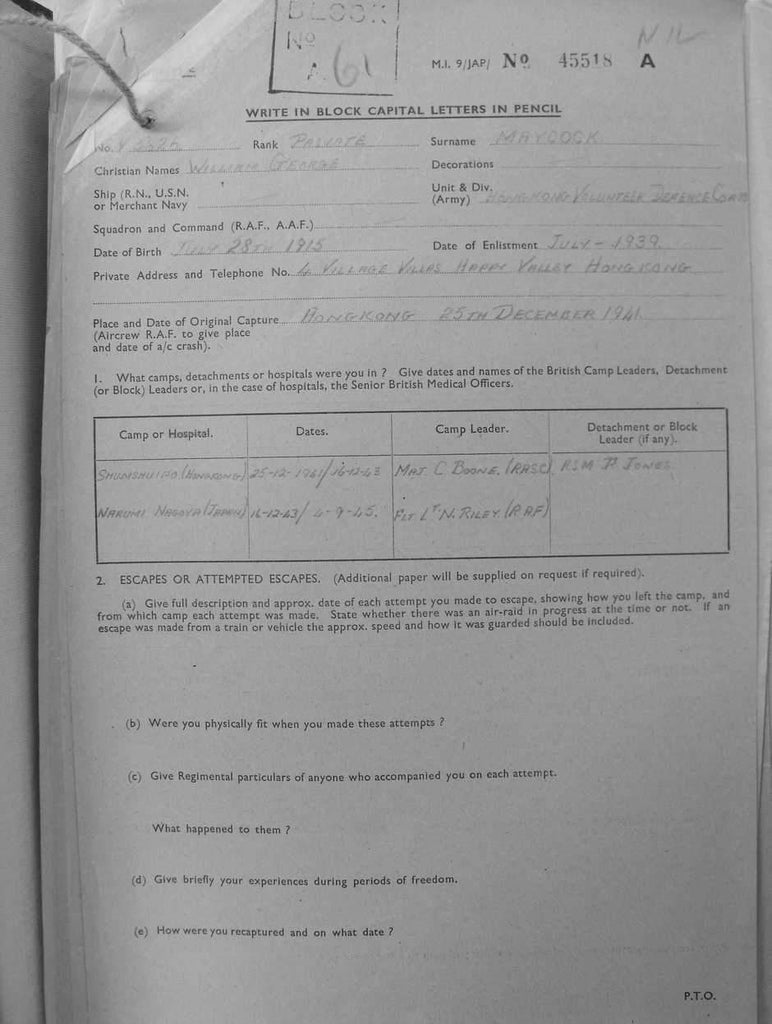 BLOCK
No
A.61
NIL
M.I. 9/JAP/ No 45518 A
WRITE IN BLOCK CAPITAL LETTERS IN PENCIL
No. Rank PRIVATE Surname MAYCOCK
Christian Names WILLIAM GEORGE Decorations
Ship (R.N., U.S.N. or Merchant Navy
Unit & Div. (Army) HONGKONG VOLUNTEER DEFENCE CORPS
Squadron and Command (R.A.F., A.A.F.)
Date of Birth JULY 28TH 1915 Date of Enlistment JULY - 1939.
Private Address and Telephone No. 4 VILLAGE VILLAS HAPPY VALLEY HONGKONG
Place and Date of Original Capture HONGKONG 25TH DECEMBER 1941.
(Aircrew R.A.F. to give place
and date of a/c crash).
1. What camps, detachments or hospitals were you in ? Give dates and names of the British Camp Leaders, Detachment
(or Block) Leaders or, in the case of hospitals, the Senior British Medical Officers.
Camp or Hospital. Dates. Camp Leader. Detachment or Block Leader (if any).
SHUMSHUIPO (HONGKONG) 25-12-1941/16-12-43 MAJ C BOONE. (RASC) RSM P JONES
NARUMI NAGOYA (JAPAN) 16-12-43/ 4-9-45. FLT LT N. RILEY (RAF)
2. ESCAPES OR ATTEMPTED ESCAPES. (Additional paper will be supplied on request if required).
(a) Give full description and approx. date of each attempt you made to escape, showing how you left the camp, and
from which camp each attempt was made. State whether there was an air-raid in progress at the time or not. If an
escape was made from a train or vehicle the approx. speed and how it was guarded should be included.
(b) Were you physically fit when you made these attempts ?
(c) Give Regimental particulars of anyone who accompanied you on each attempt.
What happened to them ?
(d) Give briefly your experiences during periods of freedom.
(e) How were you recaptured and on what date ?
P.T.O.